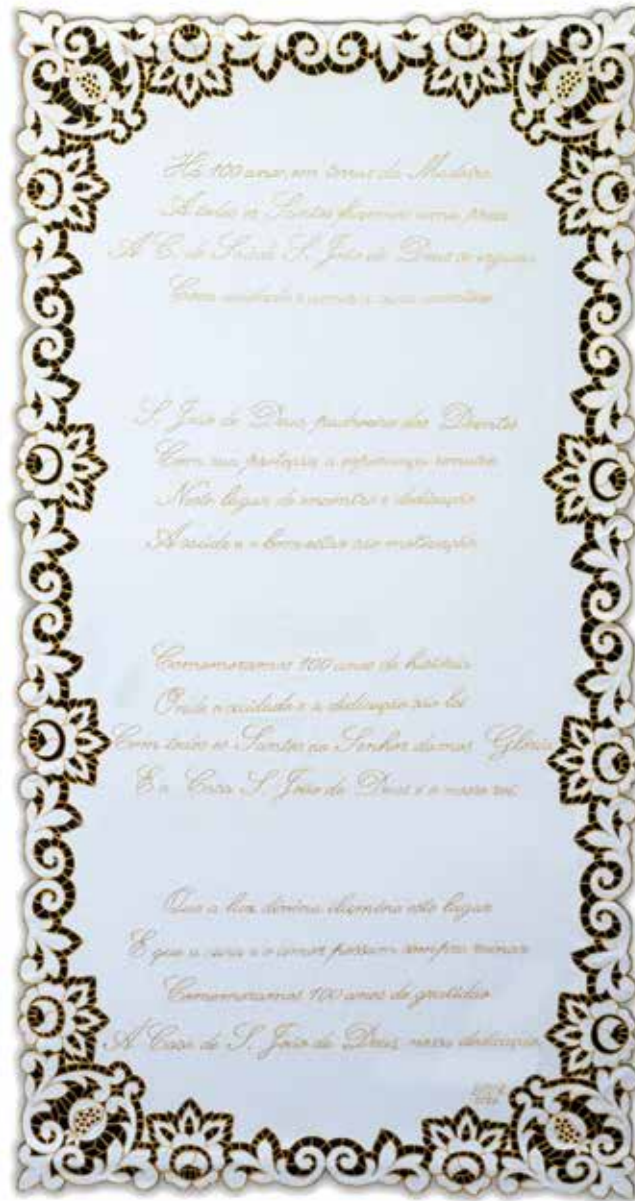 Há 100 anos, em terras da Madeira
A todos os Santos fazemos uma prece
A C. de Saúde S. João de Deus se ergueu
Com cuidado e amor a
S. João de Deus, padroeiro dos Doentes
Com sua proteção, a esperança
Neste lugar de encontro e dedicação
A saúde e o bem-estar são motivação
Comemoramos 100 anos de história
Onde o cuidado e a dedicação são lei
Com todos os Santos ao Senhor damos Glória
E a Casa S. João de Deus é o nosso rei
Que a luz divina ilumine este lugar
E que a cura e o amor possam sempre reinar
Comemoramos 100 anos de gratidão
À Casa de S. João de Deus, nossa dedicação